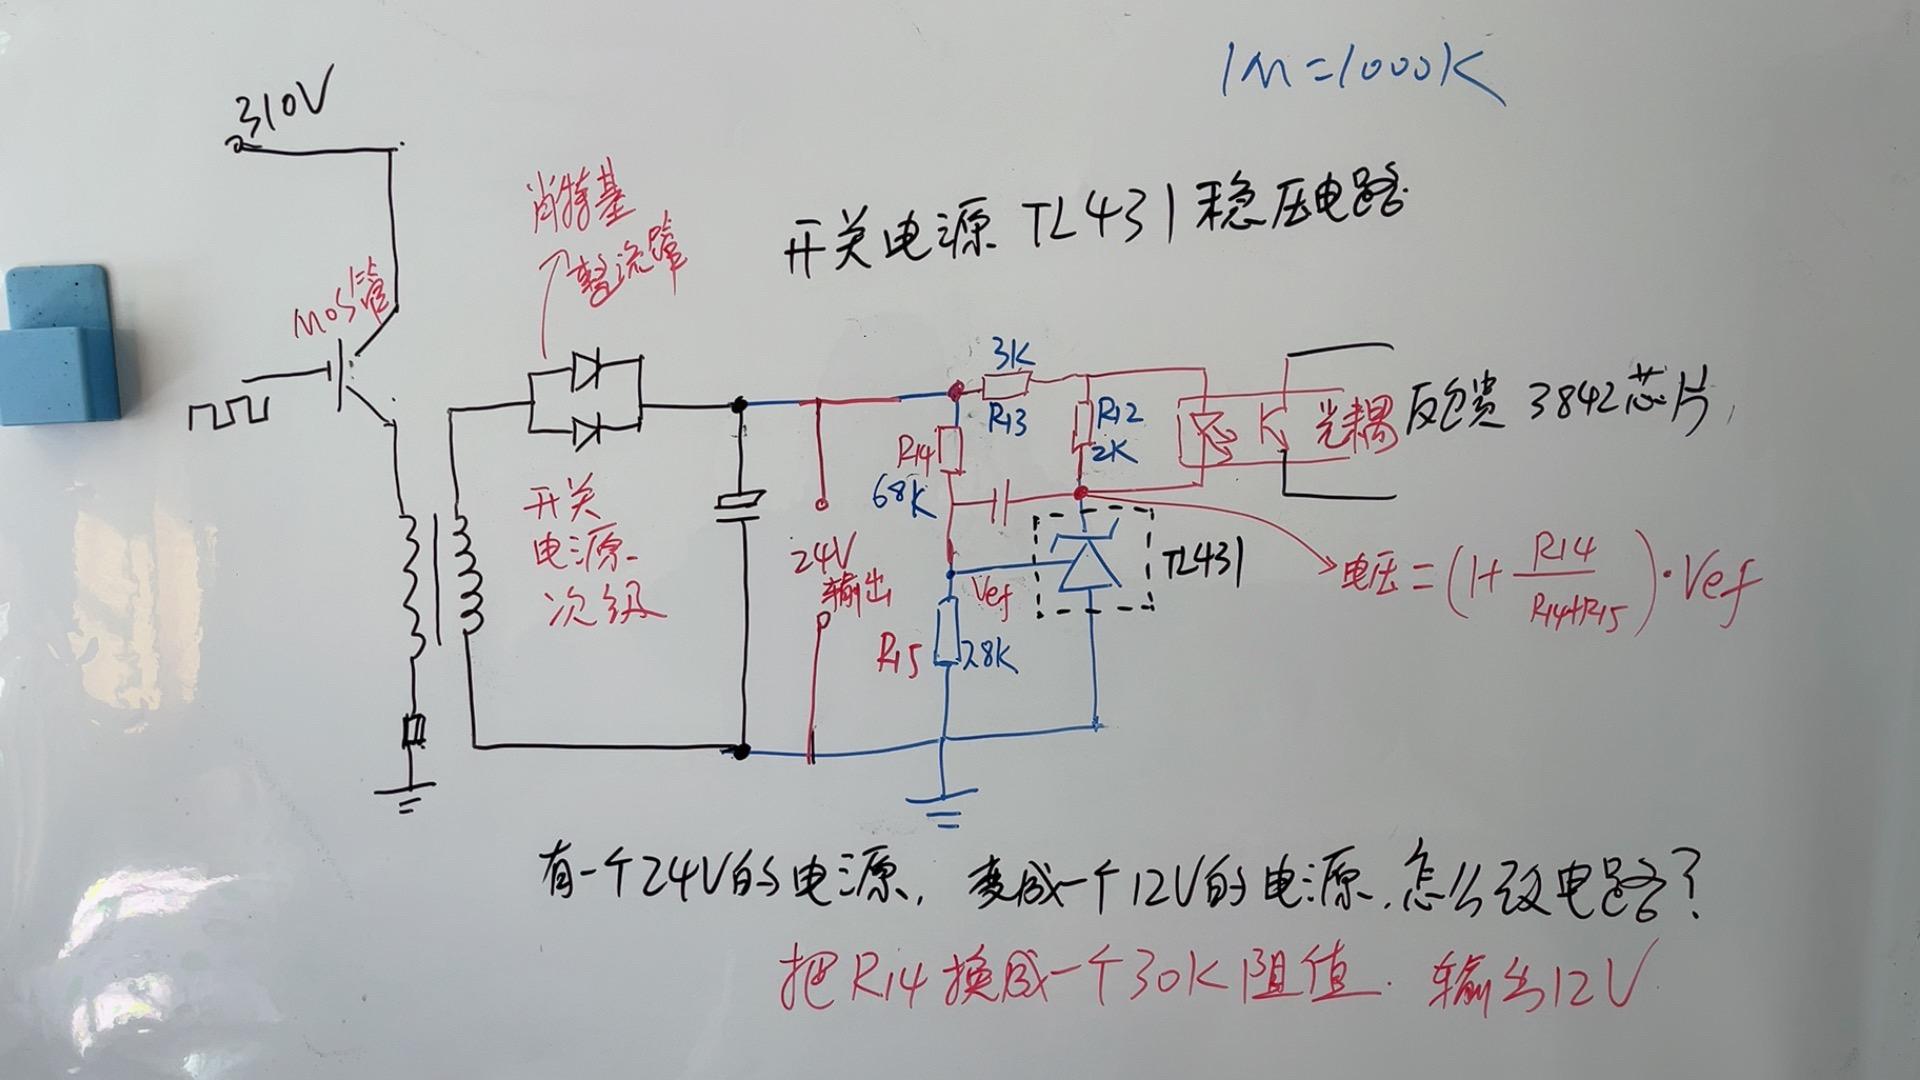 1M=1000K
310V
肖特基
整流管
开关电源 TL431稳压电路
MOS管
3K
R13
R12
2K
R14
68K
光耦
反馈 3842芯片
开关
电源
次级
24V
输出
Vef
TL431
R15
28K
电压=(1+R14/R14+R15)·Vef
有一个24V的电源,变成一个12V的电源.怎么改电路?
把R14换成一个30K阻值. 输出12V